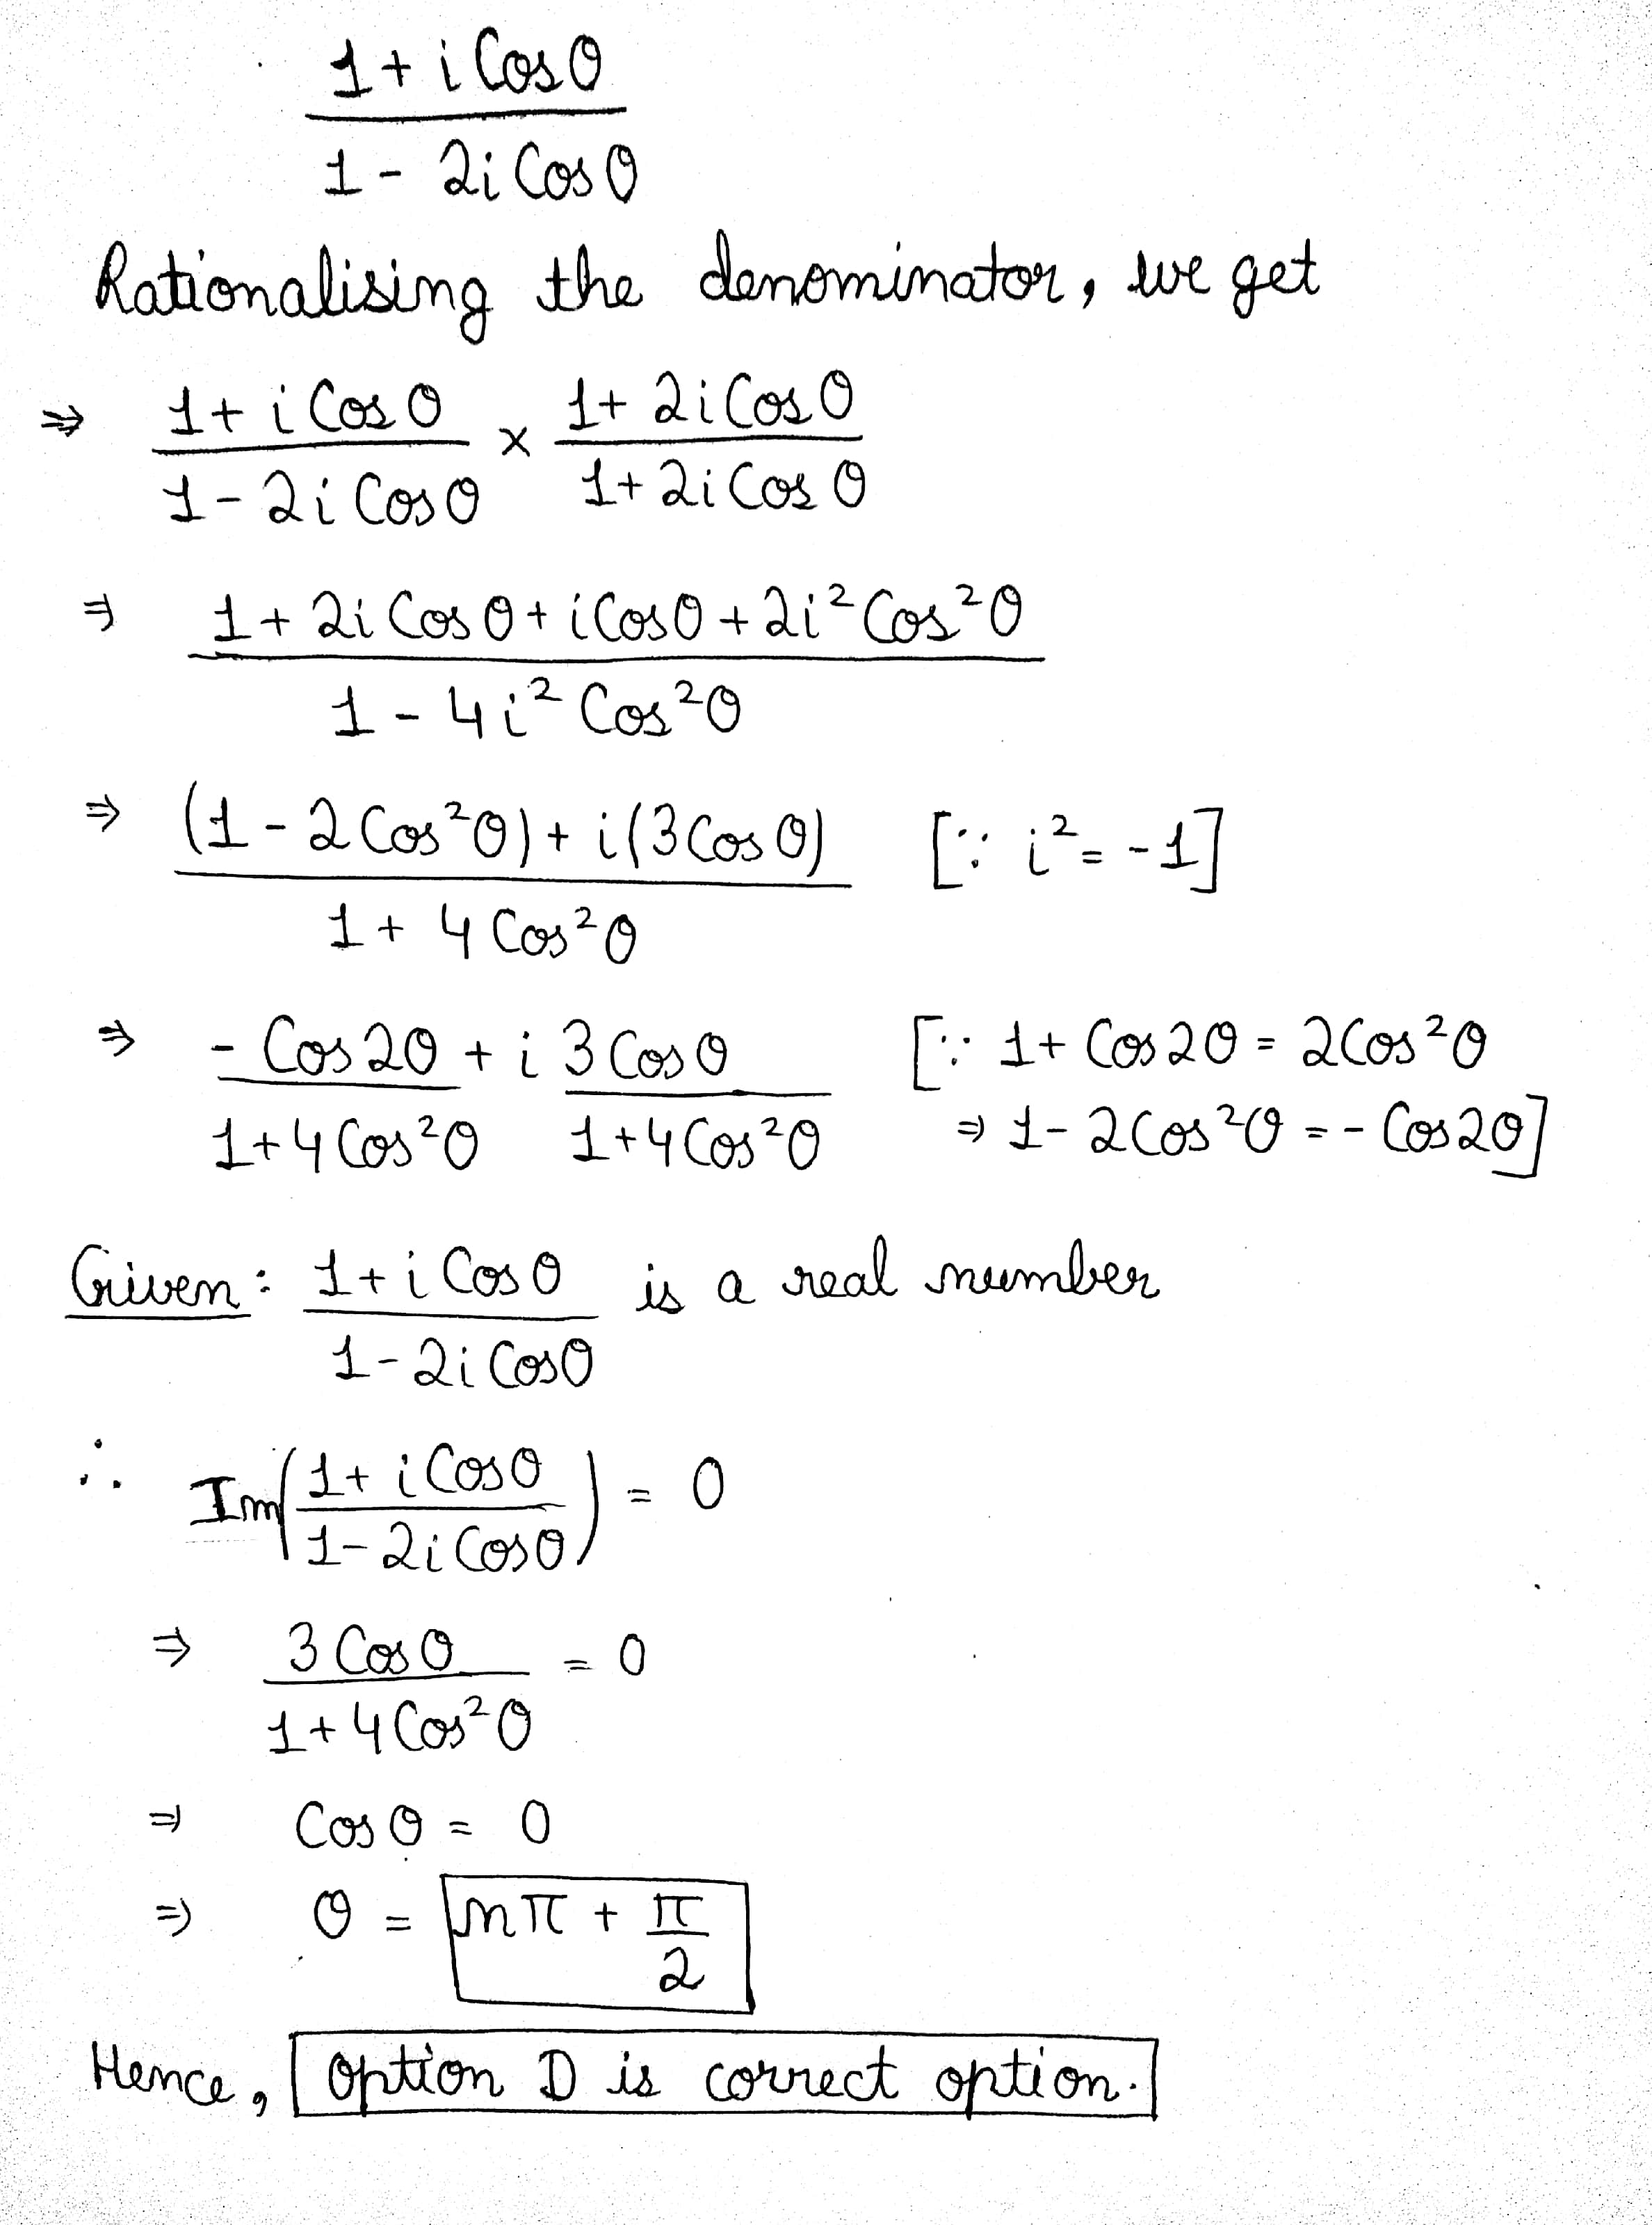 1 + i Cos θ / 1 - 2i Cos θ
Rationalising the denominator, we get
⇒ 1 + i Cos θ / 1 - 2i Cos θ × 1 + 2i Cos θ / 1 + 2i Cos θ
⇒ 1 + 2i Cos θ + i Cos θ + 2i² Cos²θ / 1 - 4i² Cos²θ
⇒ (1 - 2 Cos²θ) + i(3 Cos θ) / 1 + 4 Cos²θ [∵ i² = -1]
⇒ - Cos 2θ / 1 + 4 Cos²θ + i 3 Cos θ / 1 + 4 Cos²θ [∵ 1 + Cos 2θ = 2 Cos²θ
⇒ 1 - 2 Cos²θ = - Cos 2θ]
Given: 1 + i Cos θ / 1 - 2i Cos θ is a real number
∴ Im(1 + i Cos θ / 1 - 2i Cos θ) = 0
⇒ 3 Cos θ / 1 + 4 Cos²θ = 0
⇒ Cos θ = 0
⇒ θ = nπ + π / 2
Hence, Option D is correct option.